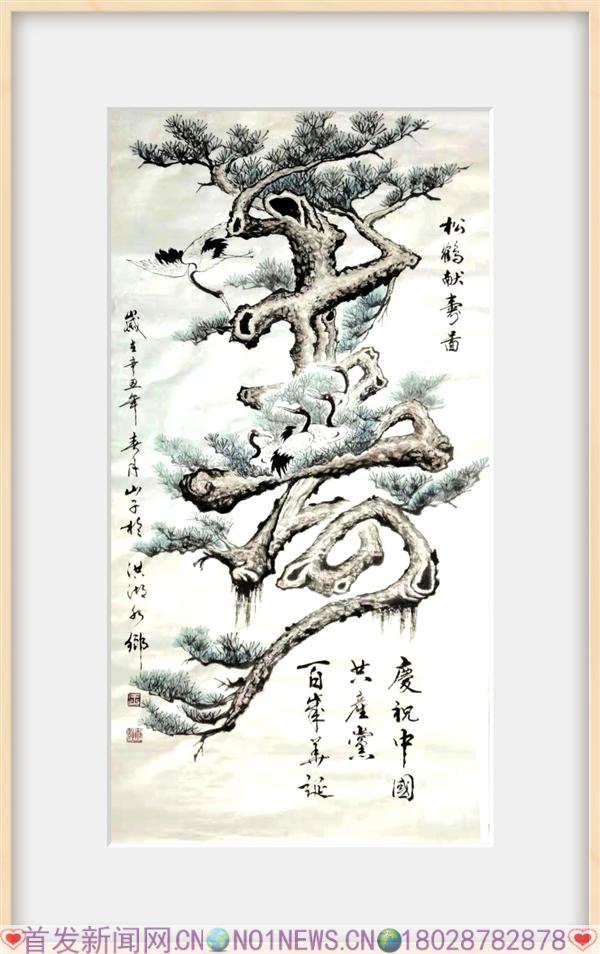 松鶴献壽畐
慶祝中國
共產黨
百歲華誕
歲在辛丑年春月山子於洪湖水鄉
首发新闻网.CN NO1NEWS.CN 18028782878